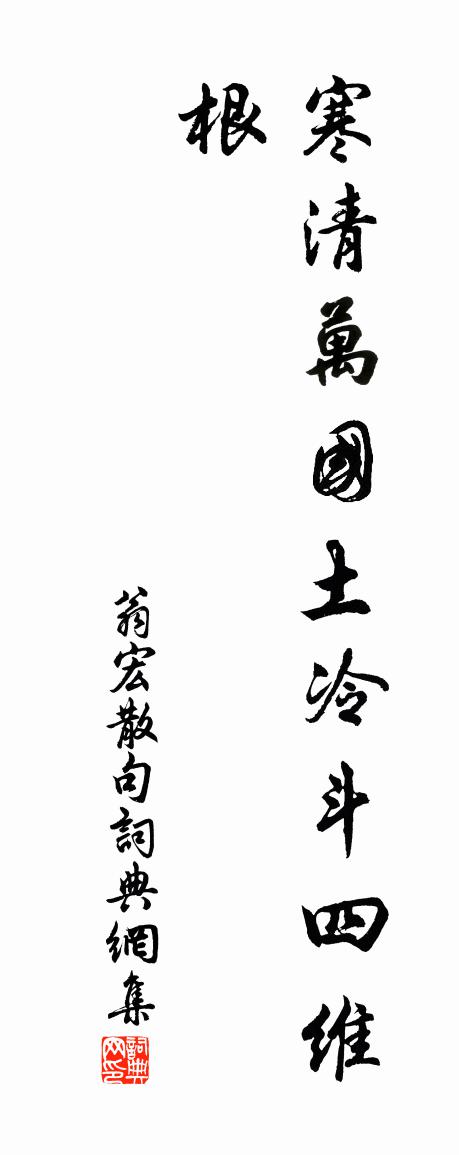 寒清萬國土冷斗四維
根
翁宏散句詞典網集
詞典网印